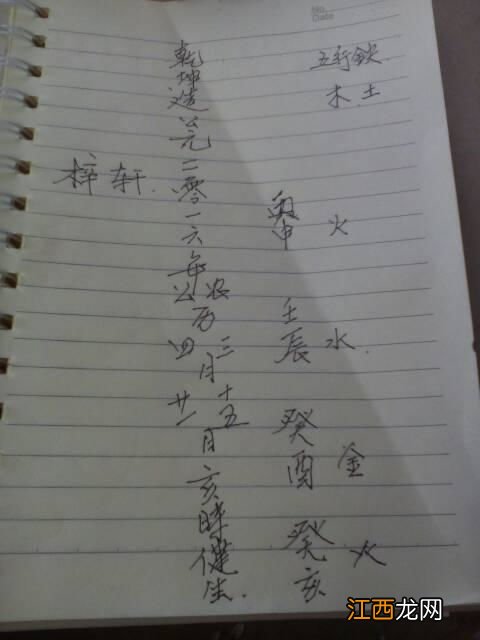 No.
Date
五行缺
木.土
丙申 火
壬辰 水.
癸酉 金
癸亥 火
乾坤造公元二零一六年
公农历
四三月
廿一十五日
亥時健生.
梓轩.
江西龙网
JXCN.CN